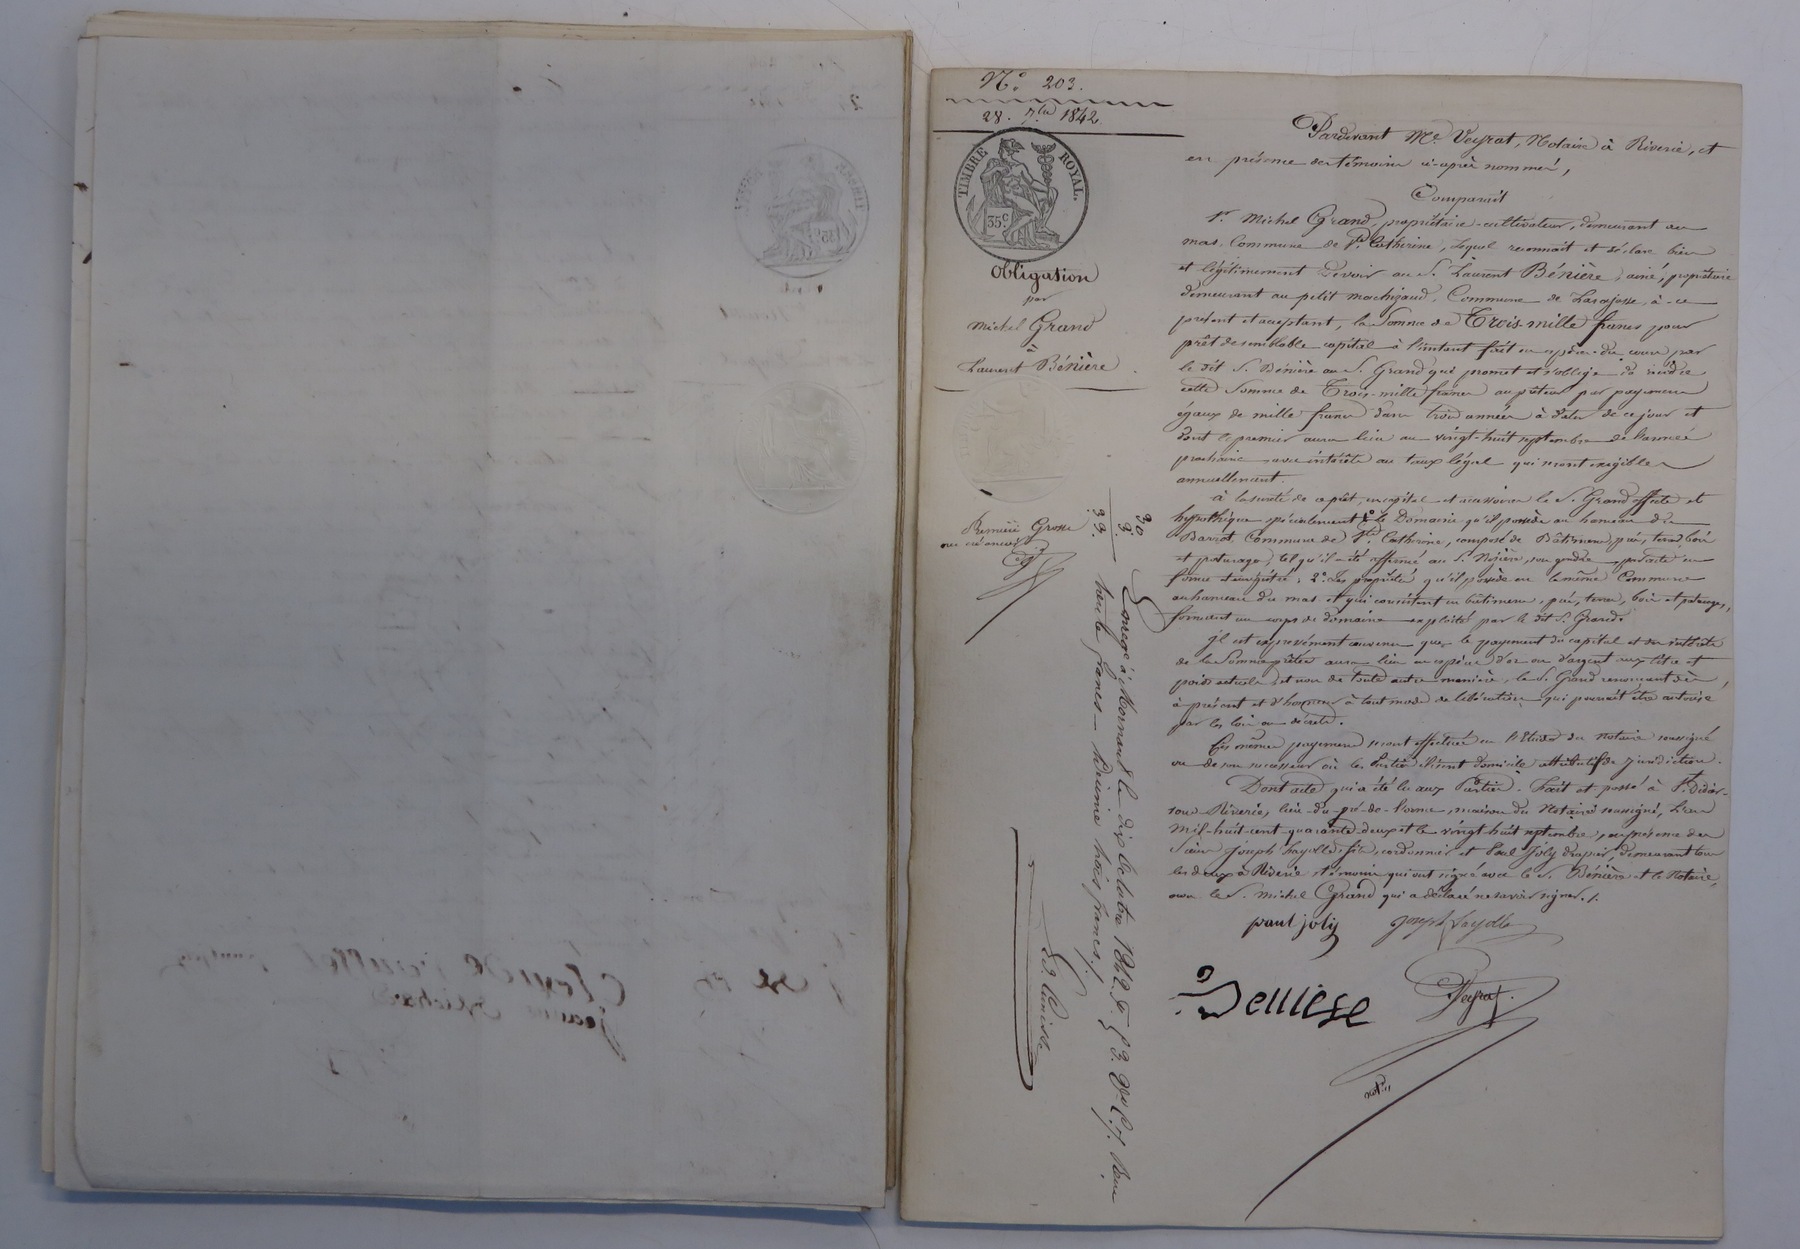 N.° 203.
28. 7.bre 1842.
TIMBRE ROYAL.
35 c.
Obligation
par
Michel Grand
à
Laurent Bénière
Première Grosse
au créancier
Pardevant Me. Veyrat, Notaire à Riverie, et
en présence des témoins ci-après nommés,
Comparait
Sr. Michel Grand, propriétaire-cultivateur, demeurant au
mas, Commune de Ste. Catherine, lequel reconnait et déclare bien
et légitimement devoir au S. Laurent Bénière, ainé, propriétaire
demeurant au petit machizaud, Commune de Larajasse, à ce
présent et acceptant, la Somme de Trois-mille francs pour
prêt de semblable capital à l'instant fait en espèces du cours par
le dit S. Bénière au S. Grand qui promet et s'oblige de rendre
cette Somme de Trois-mille francs au prêteur par payemens
égaux de mille francs dans trois années à dater de ce jour et
dont le premier aura lieu au vingt-huit septembre de l'année
prochaine avec intérêts au taux légal qui seront exigibles
annuellement.
à la sureté de ce prêt, en capital et accessoires le S. Grand affecte et
hypothèque spécialement 1.° le Domaine qu'il possède au hameau du
Barrot Commune de Ste. Catherine, composé de Bâtimens, prés, terres, bois
et paturage, tel qu'il a été affermé au S. son gendre par acte en
forme et enrégistré; 2.° Les propriétés qu'il possède en la même Commune
au hameau du mas et qui consistent en bâtimens, prés, terres, bois et paturages,
formant un corps de domaine exploité par le dit S. Grand.
Il est expressément convenu que le payement du capital et des intérêts
de la Somme prêtée aura lieu en espèces d'or ou d'argent aux titre et
poids actuels, et non de toute autre manière, le S. Grand renonçant dès
à présent et d'honneur à tout mode de libération qui pourrait être autorisé
par les lois ou décrets.
Ces mêmes payemens seront effectués en l'Etude du notaire soussigné
ou de son successeur où les Parties élisent domicile attributif de juridiction.
Dont acte qui a été lu aux Parties. Fait et passé à St. Didier-
sous Riverie, lieu du pré-de-l'orme, maison du Notaire soussigné, L'an
Mil-huit-cent-quarante-deux et le vingt-huit septembre, en présence des
Sieurs Joseph Fayolle fils, cordonnier et Paul Joly drapier, demeurant tous
les deux à Riverie témoins qui ont signé avec le S. Bénière et le Notaire,
non le S. Michel Grand qui a déclaré ne savoir signer./.
paul joly
joseph fayolle
Benière
Veyrat
not.re
30
3.
33.
Enregé à Mornant le dix Octobre 1842. F.
trente francs - décime trois francs./.
Claude
Jeanne